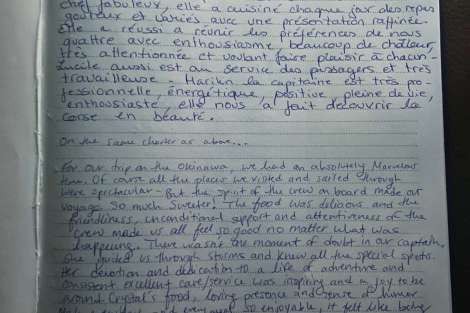 chef fabuleux, elle a cuisiné chaque jour des repas
gouteux et variés avec une présentation raffinée.
Elle a réussi à réunir les préférences de nous
quattre avec enthousiasme, beaucoup de chaleur,
très attentionnée et voulant faire plaisir à chacun-
aussi est au service des passagers et très
travailleuse. la capitaine est très pro-
fessionnelle, énergétique, positive pleine de vie,
enthousiaste, elle nous a fait découvrir la
Corse en beauté.
On the same charter as above...
For our trip on the Okinawa, we had an absolutely Marvelous
time. Of course all the places we visited and sailed through
were spectacular - But the spirit of the crew on board made our
voyage so much Sweeter! The food was delicious and the
friendliness, unconditional support and attentiveness of the
crew made us all feel so good no matter what was
happening. There wasn't one moment of doubt in our captain,
she guided us through storms and knew all the special spots.
Her devotion and dedication to a life of adventure and
consistent excellent care/service was inspiring and a joy to be
around. Crystal's food, loving presence and sense of humor
so enjoyable, it felt like being